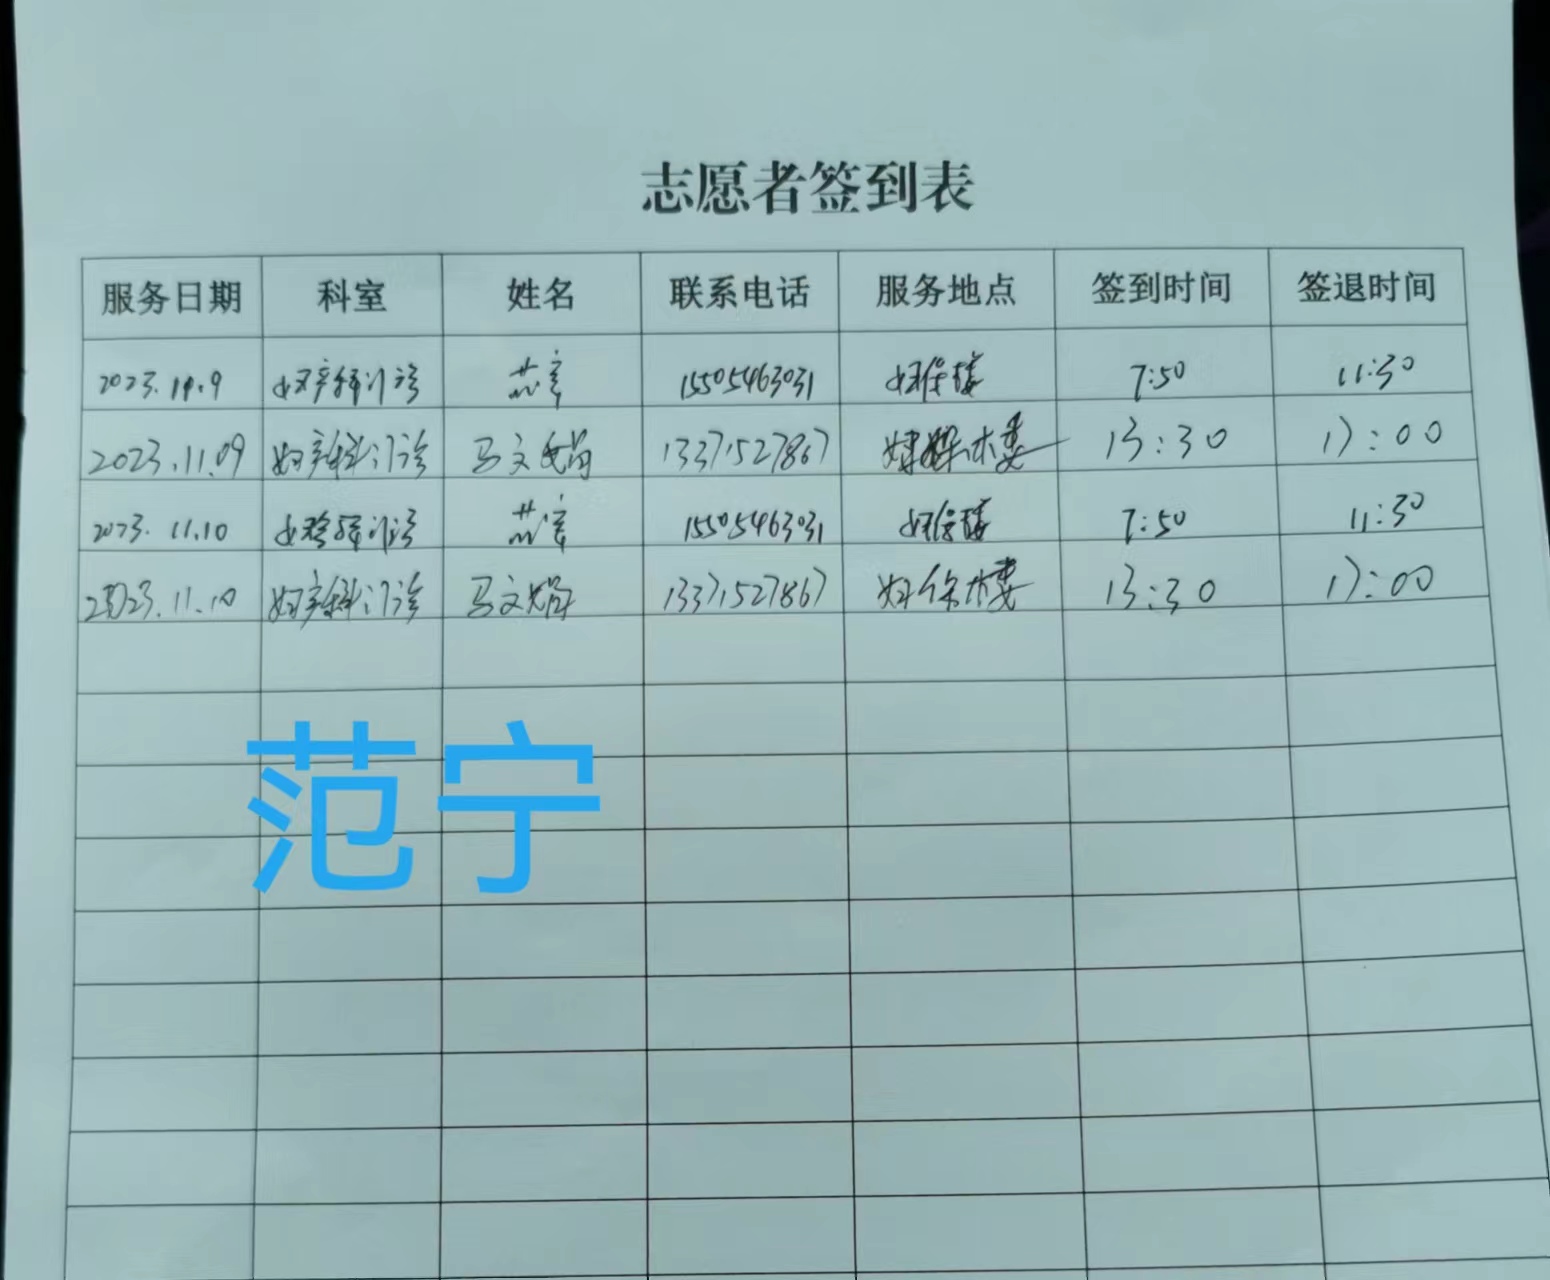 志愿者签到表
服务日期 科室 姓名 联系电话 服务地点 签到时间 签退时间
2023.11.9 妇产科门诊 15505463031 妇保楼 7:50 11:30
2023.11.09 妇产科门诊 马文娟 13371527867 楼 13:30 17:00
2023.11.10 妇产科门诊 15505463031 妇保楼 7:50 11:30
2023.11.10 妇产科门诊 马文娟 13371527867 妇保楼 13:30 17:00
范宁